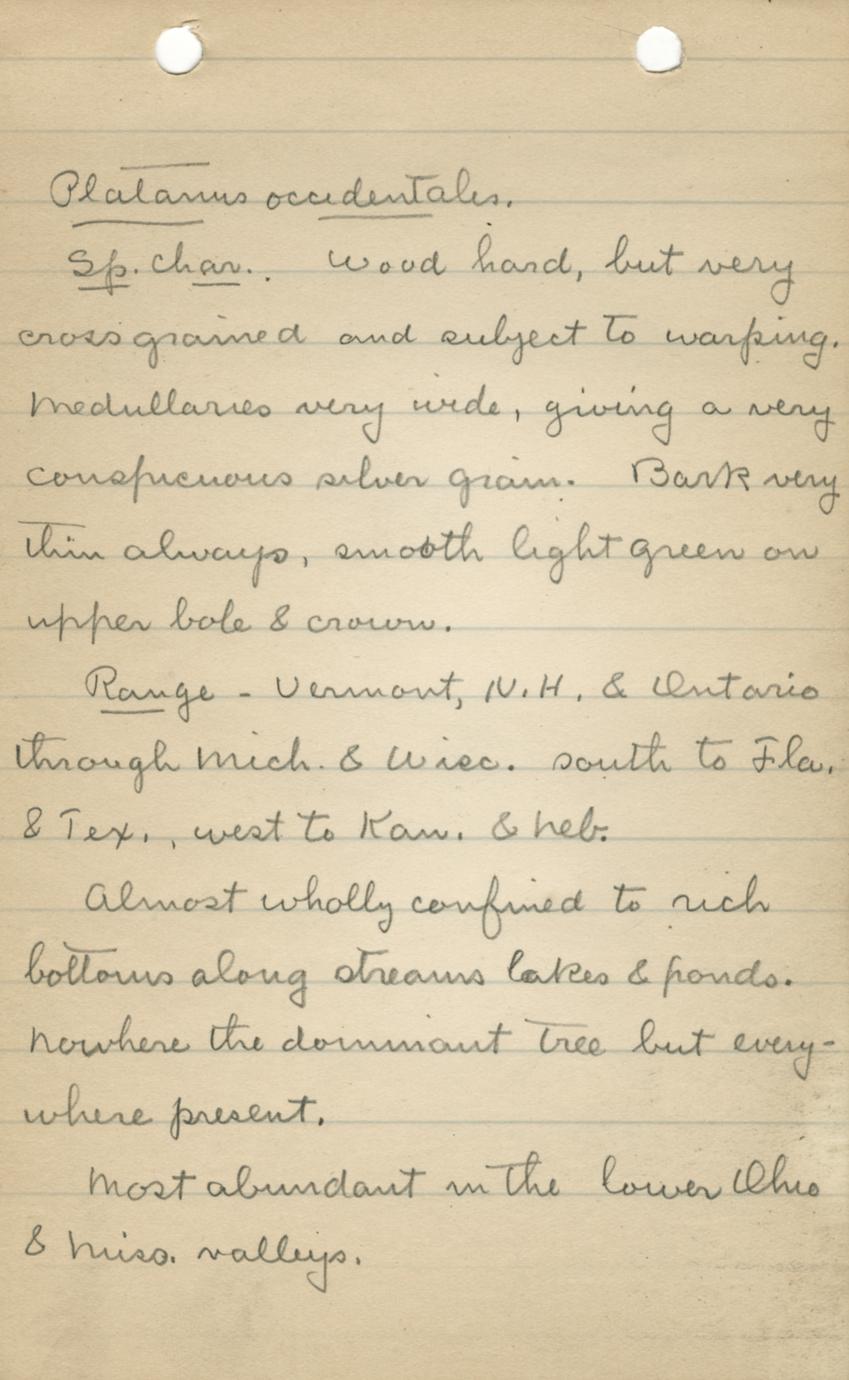 Platanus occidentales.
Sp. char. . Wood hard, but very
crossgrained and subject to warping.
Medullaries very wide, giving a very
conspicuous silver grain. Bark very
thin always, smooth light green on
upper bole & crown.
Range - Vermont, N.H. & Ontario
through Mich. & Wisc. south to Fla.
& Tex., west to Kan. & Neb.
Almost wholly confined to rich
bottoms along streams lakes & ponds.
Nowhere the dominant tree but every-
where present.
Most abundant in the lower Ohio
& Miss. valleys.